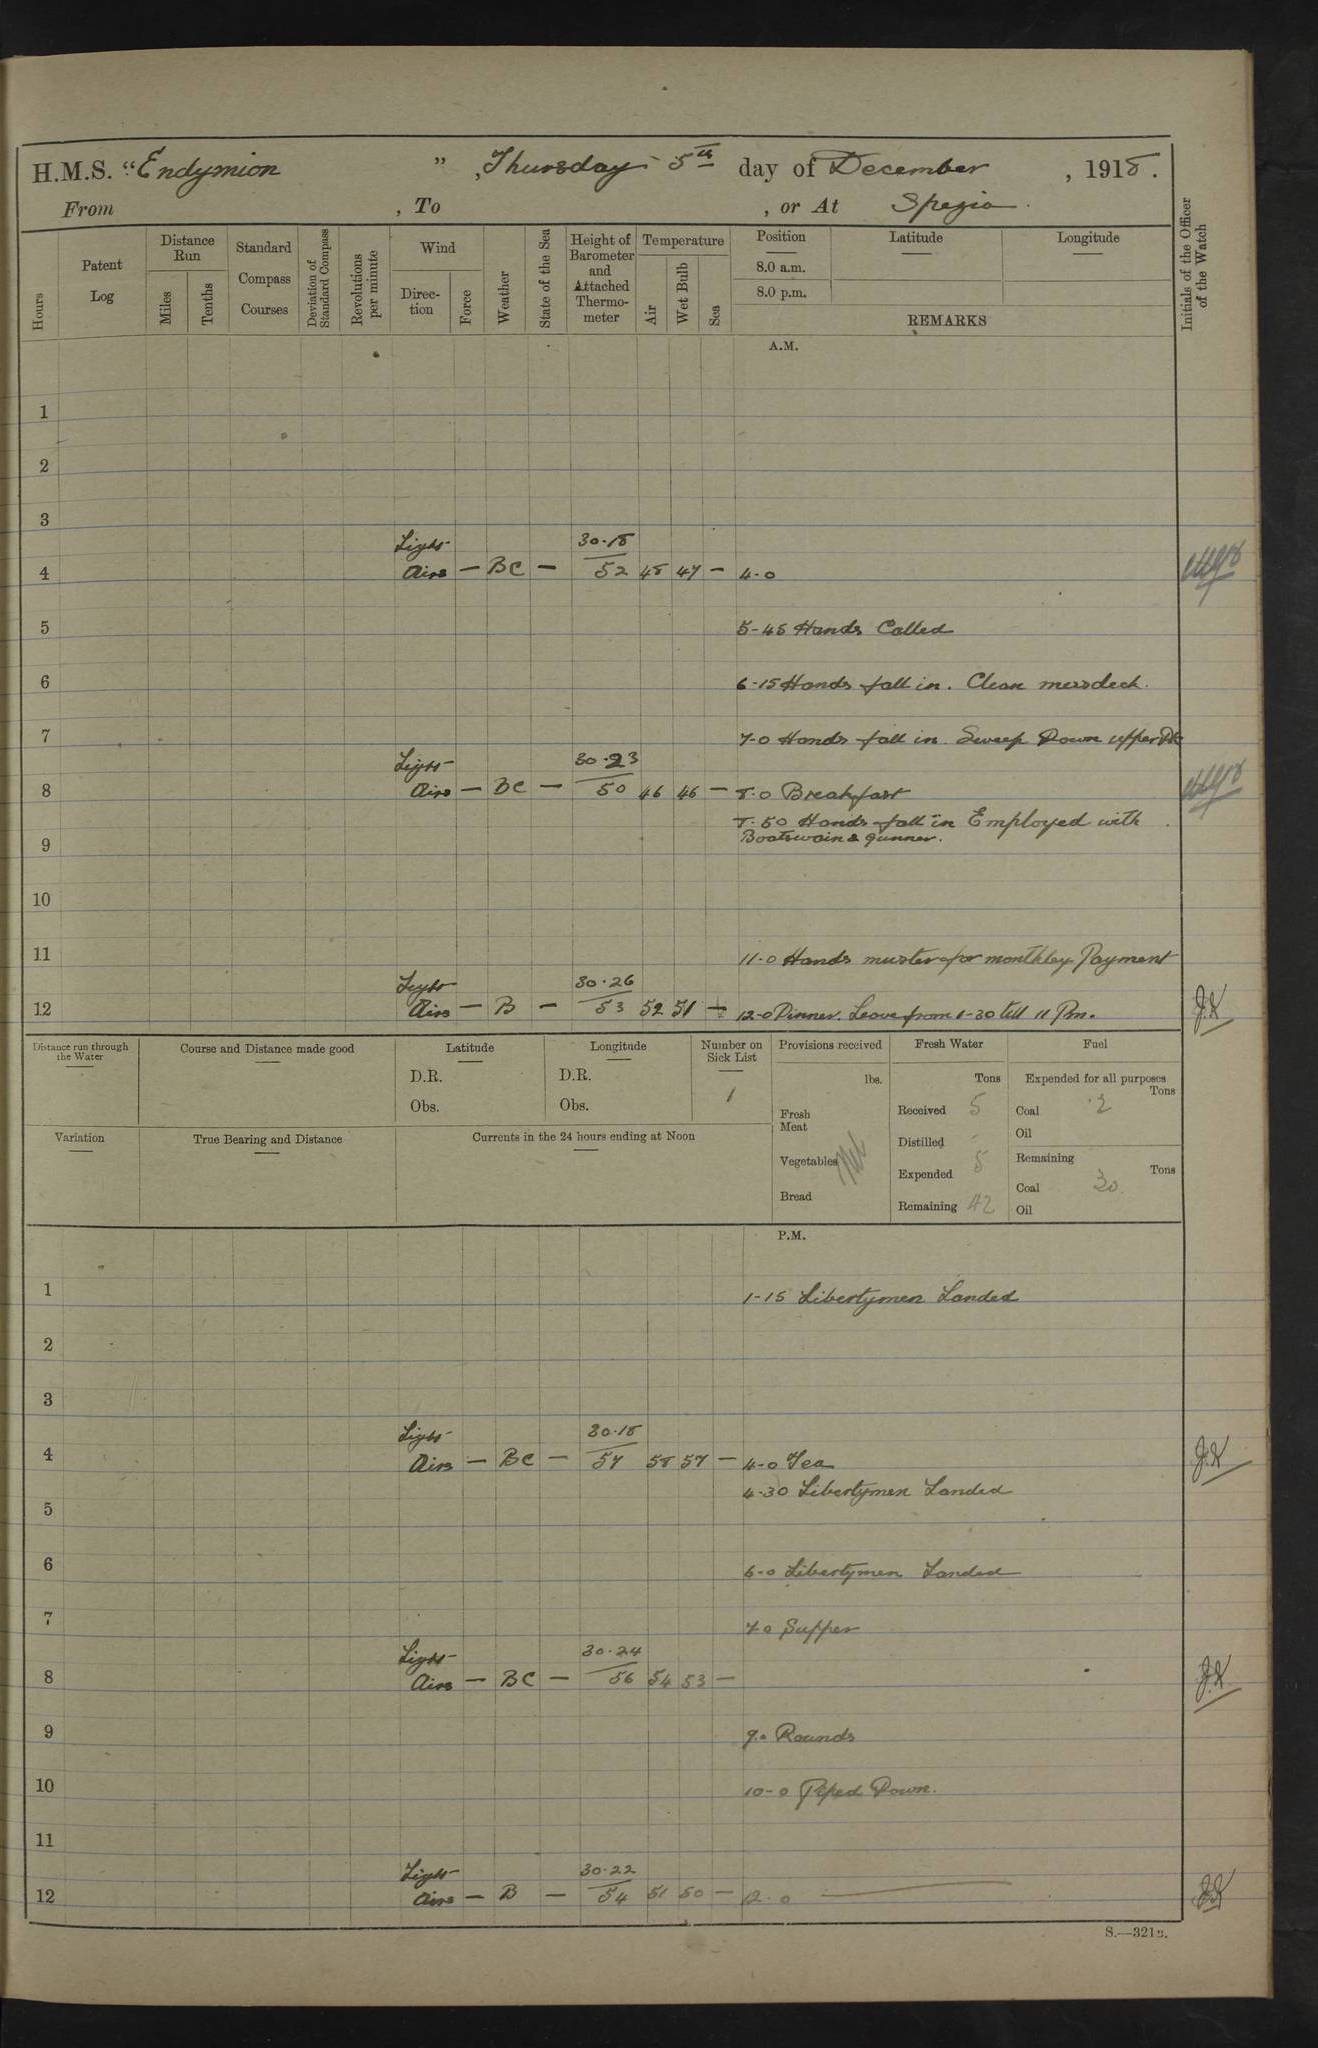 H.M.S. "Endymion", Thursday 5th day of December, 1918.
From , To , or At Spezia.
Hours
Patent Log
Distance Run
Miles
Tenths
Standard Compass Courses
Deviation of Standard Compass
Revolutions per minute
Wind
Direction
Force
Weather
State of the Sea
Height of Barometer and Attached Thermometer
Temperature
Air
Wet Bulb
Sea
Position
8.0 a.m.
8.0 p.m.
Latitude
Longitude
REMARKS
Initials of the Officer of the Watch
A.M.
1
2
3
Light 30.18
4 Airs — BC — 52 48 47 — 4-0
5 5-45 Hands Called
6 6-15 Hands fall in. Clean messdeck.
7 7-0 Hands fall in. Sweep Down upper Dk
Light 30.23
8 Airs — BC — 50 46 46 — 8.0 Breakfast
8.50 Hands fall in Employed with
9 Boatswain & gunner.
10
11 11-0 Hands muster for monthley Payment
Light 30.26
12 Airs — B — 53 52 51 — 12-0 Dinner. Leave from 1-30 till 11 Pm. J.K
Distance run through the Water
Course and Distance made good
Latitude
D.R.
Obs.
Longitude
D.R.
Obs.
Number on Sick List
1
Provisions received
lbs.
Fresh Meat
Vegetables
Bread
Nil
Fresh Water
Tons
Received 5
Distilled -
Expended 5
Remaining 42
Fuel
Expended for all purposes
Tons
Coal 2
Oil
Remaining
Tons
Coal 30
Oil
Variation
True Bearing and Distance
Currents in the 24 hours ending at Noon
P.M.
1 1-15 Libertymen Landed
2
3
Light 30.18
4 Airs — BC — 57 58 57 — 4-0 Tea J.K
4-30 Libertymen Landed
5
6 6-0 Libertymen Landed
7 7-0 Supper
Light 30.24
8 Airs — BC — 56 54 53 — J.K
9 9.0 Rounds
10 10-0 Piped Down.
11
Light 30.22
12 Airs — B — 54 51 50 — 12.0 J.K
S.—321B.